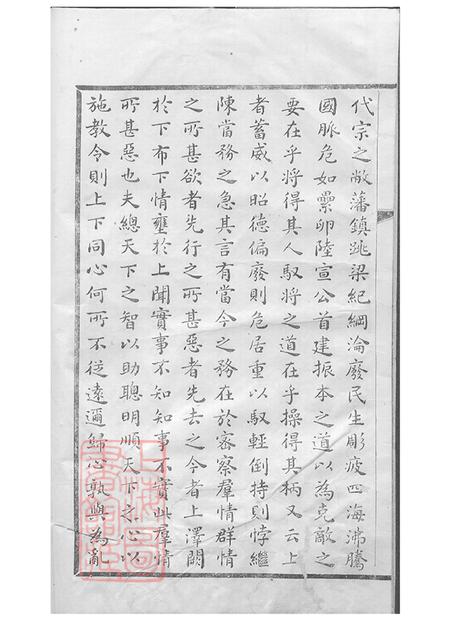 代宗之敝藩鎮跳梁紀綱淪廢民生彫疲四海沸騰
國脈危如纍卵陸宣公首建振本之道以為克敵之
要在乎將得其人馭將之道在乎操得其柄又云上
者蓄威以昭德偏廢則危居重以馭輕倒持則悖繼
陳當務之急其言有當今之務在於審察羣情群情
之所甚欲者先行之所甚惡者先去之今者上澤闕
於下布下情壅於上聞實事不知知事不實此羣情
所甚惡也夫總天下之智以助聰明順天下之心以
施教令則上下同心何所不從遠邇歸心孰與為亂